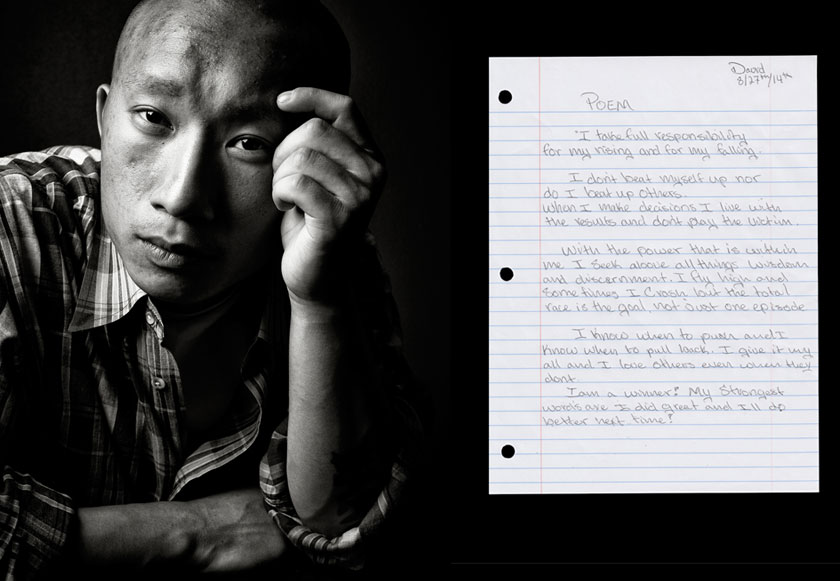 David
8/27th/14th
POEM
"I take full responsibility
for my rising and for my falling.
I dont beat myself up nor
do I beat up others.
When I make decisions I live with
the results and dont play the victim.
With the power that is within
me I seek above all things wisdom
and discernment. I fly high and
sometimes I crash but the total
race is the goal, not just one episode
I know when to push and I
know when to pull back. I give it my
all and I love others even when they
dont.
I am a winner! My strongest
words are I did great and I'll do
better next time!